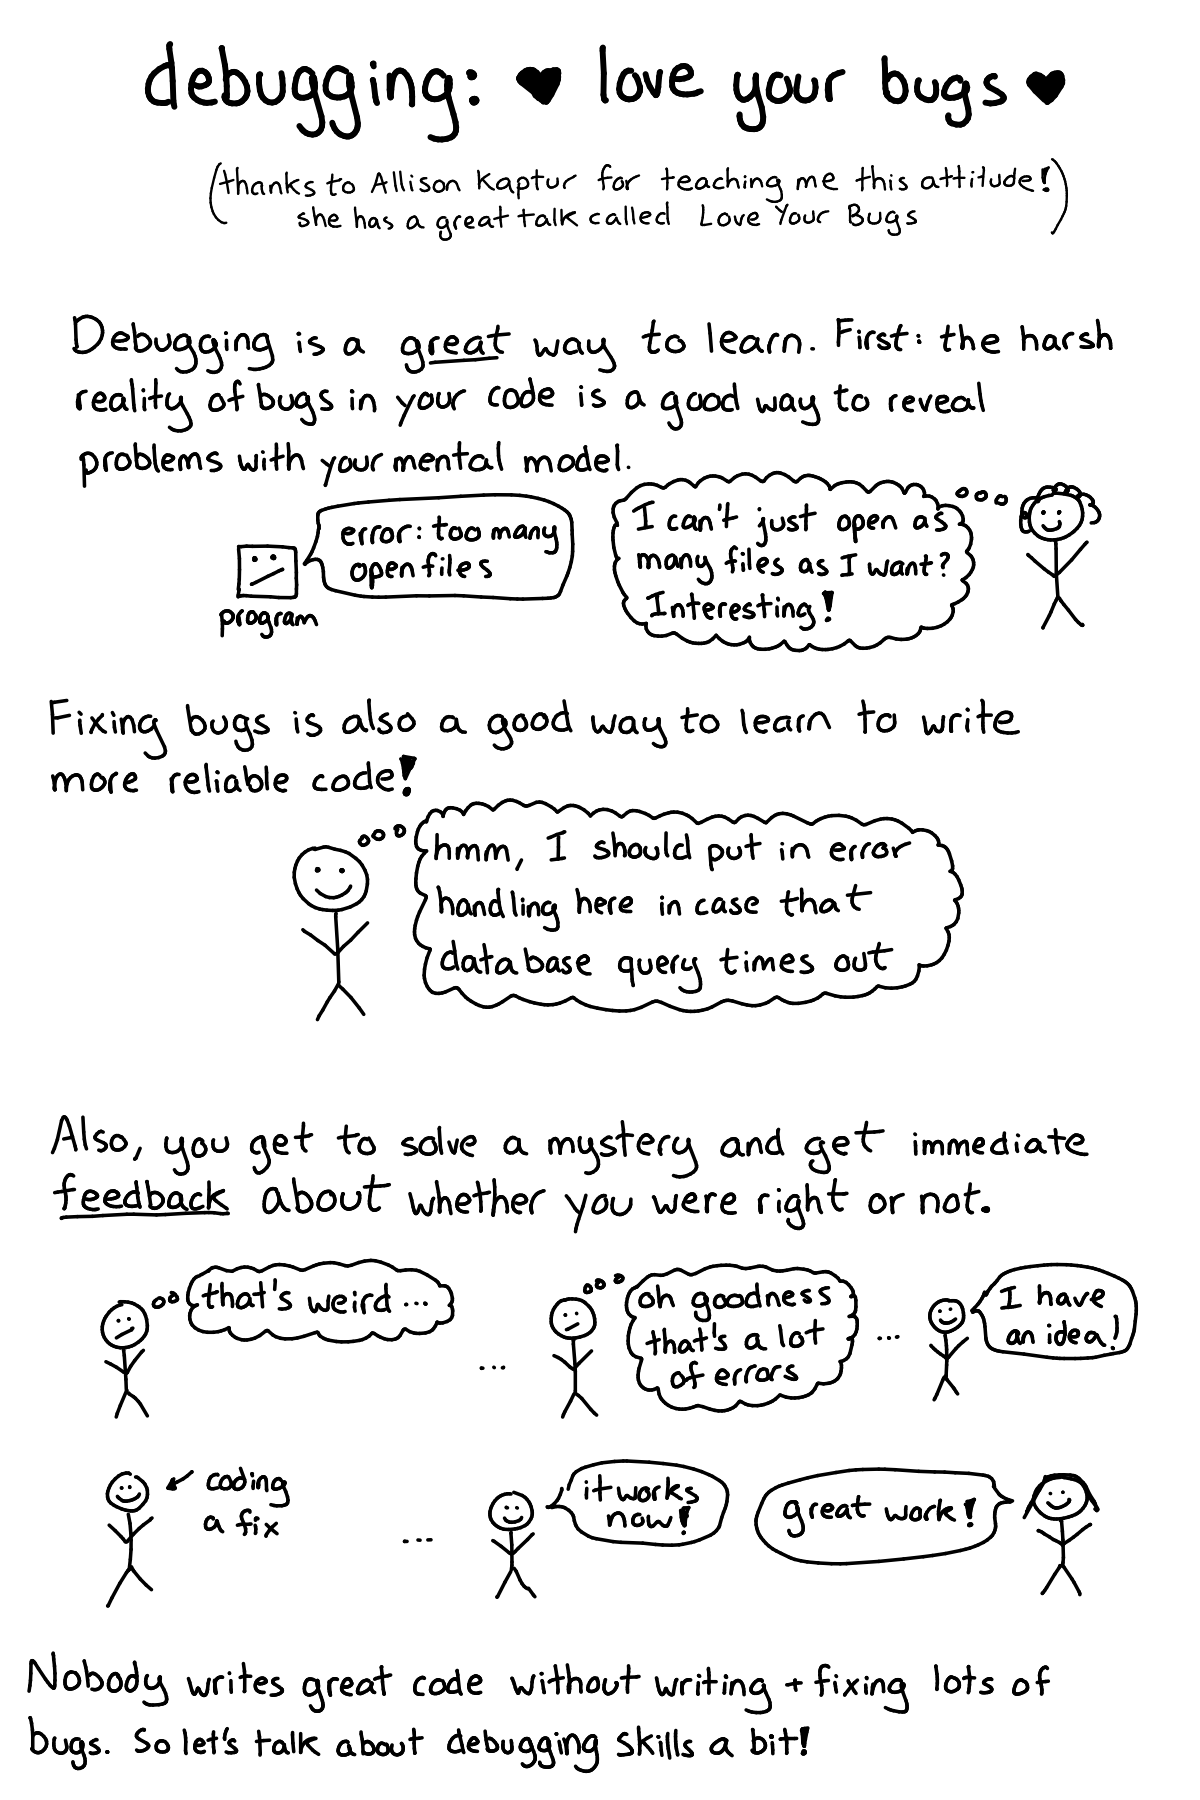 debugging: ♥ love your bugs ♥
(thanks to Allison Kaptur for teaching me this attitude!
she has a great talk called Love Your Bugs)
Debugging is a great way to learn. First: the harsh
reality of bugs in your code is a good way to reveal
problems with your mental model.
error: too many
open files
program
I can't just open as
many files as I want?
Interesting!
Fixing bugs is also a good way to learn to write
more reliable code!
hmm, I should put in error
handling here in case that
database query times out
Also, you get to solve a mystery and get immediate
feedback about whether you were right or not.
that's weird...
...
oh goodness
that's a lot
of errors
...
I have
an idea!
coding
a fix
...
it works
now!
great work!
Nobody writes great code without writing + fixing lots of
bugs. So let's talk about debugging skills a bit!